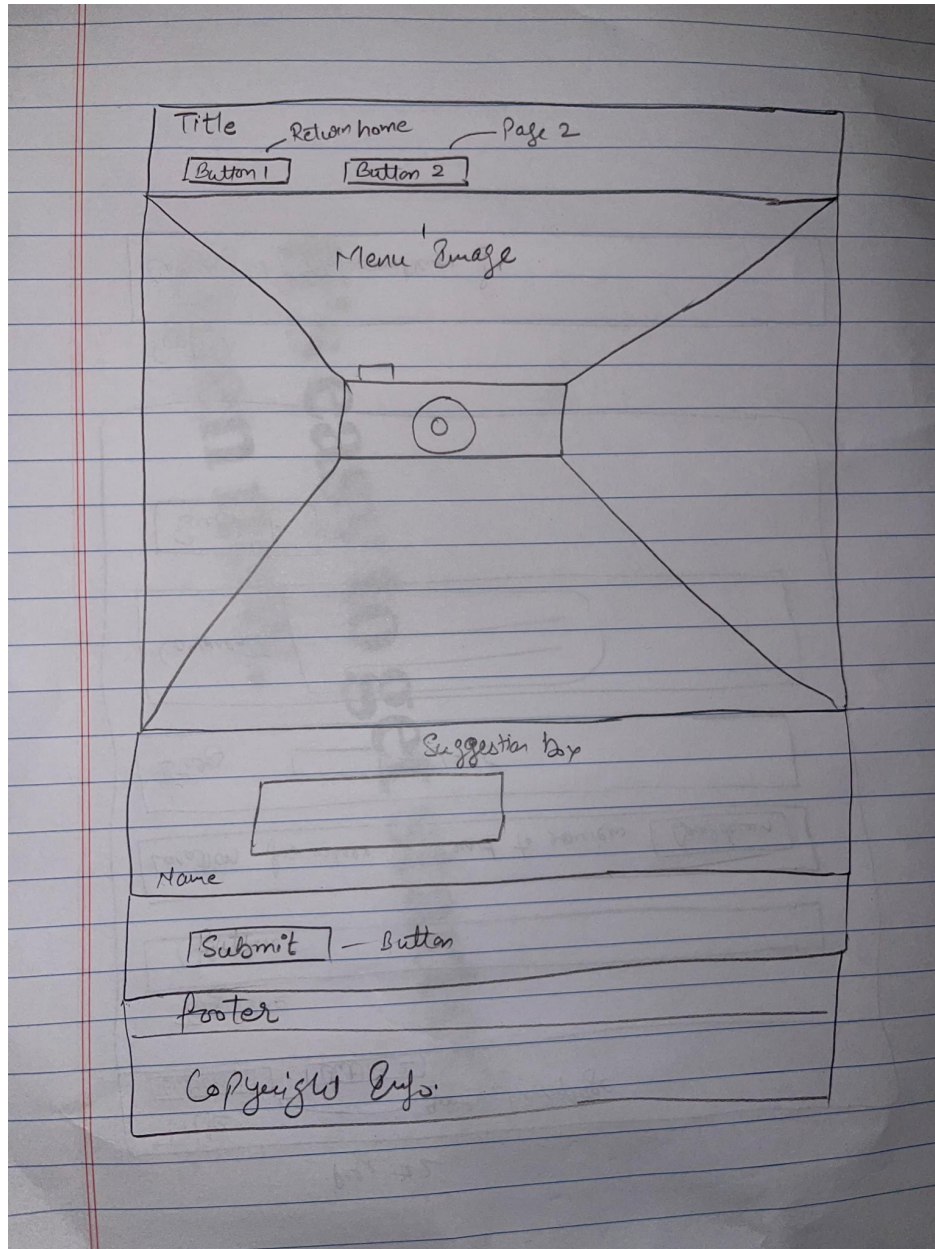 Title
Return home
Page 2
Button 1
Button 2
Menu Image
Suggestion box
Name
Submit - Button
footer
Copyright Info.